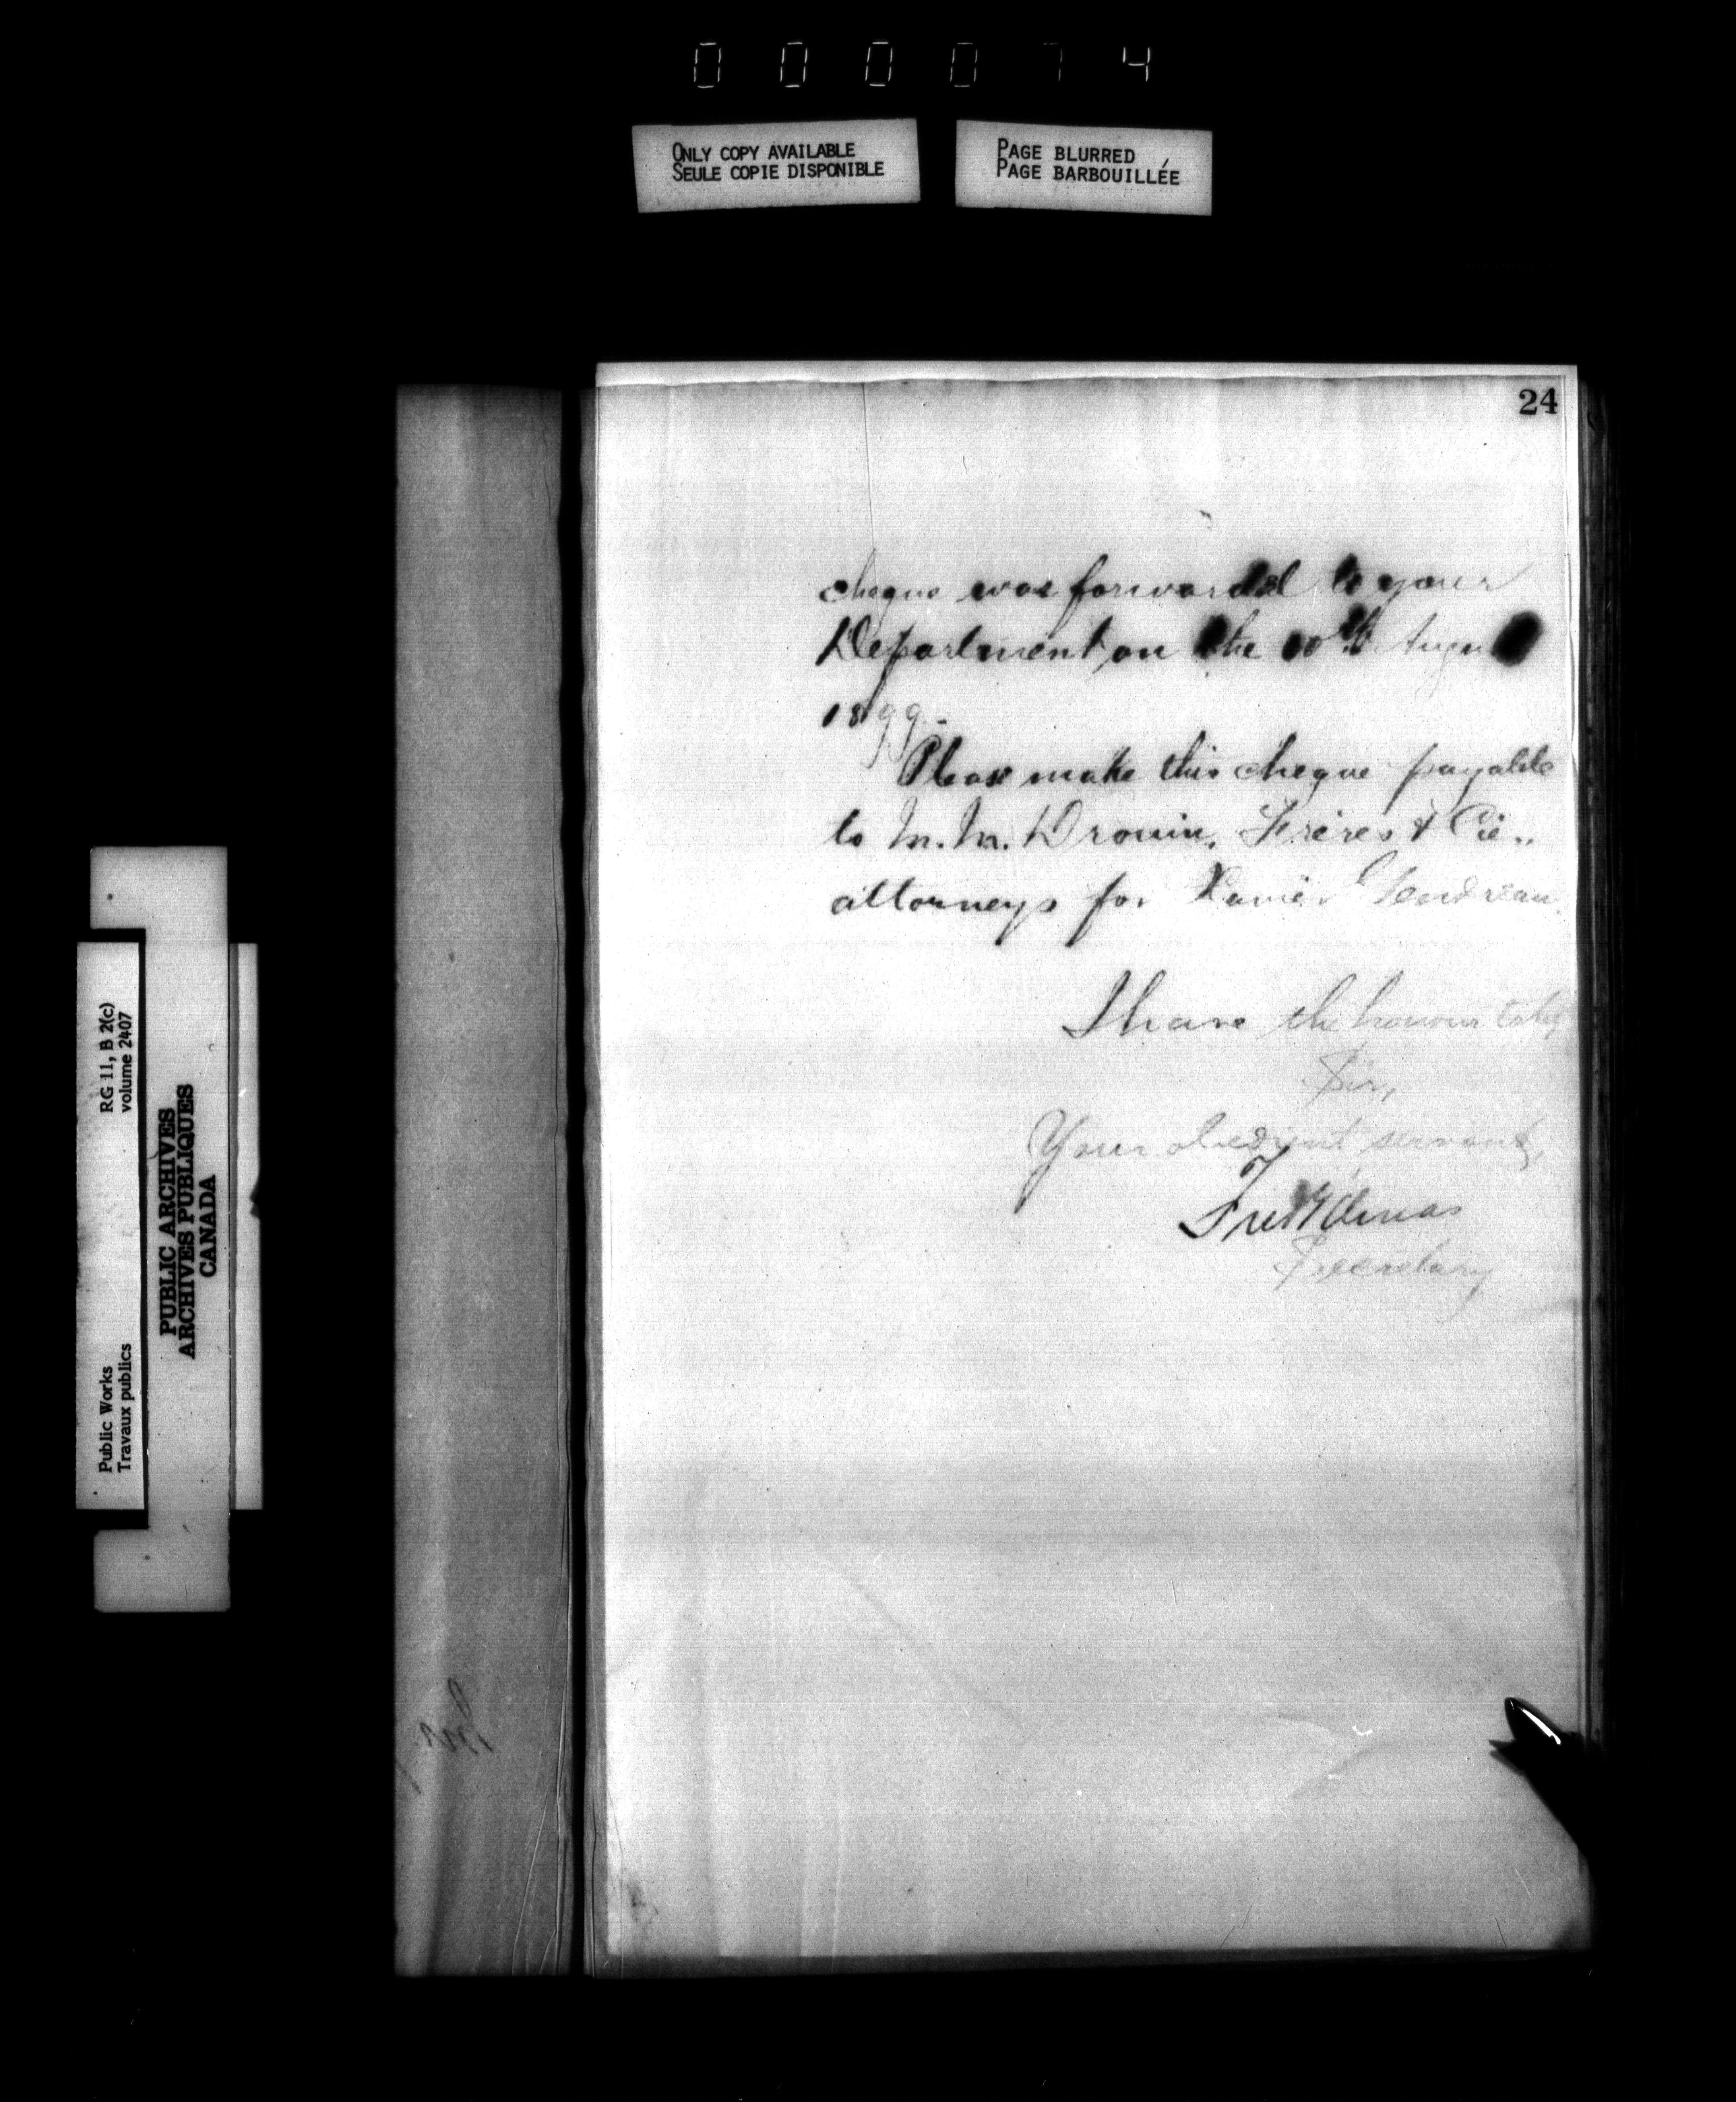 000074
ONLY COPY AVAILABLE
SEULE COPIE DISPONIBLE
PAGE BLURRED
PAGE BARBOUILLÉE
24
cheque was forwarded to your
Department on the August
1899.
Please make this cheque payable
to M.M. Drouin, Frères & Cie.,
attorneys for Xavier Gendreau.
I have the honour to be
Sir,
Your obedient servant,
Secretary
RG 11, B 2(c)
volume 2407
Public Works
Travaux publics
PUBLIC ARCHIVES
ARCHIVES PUBLIQUES
CANADA